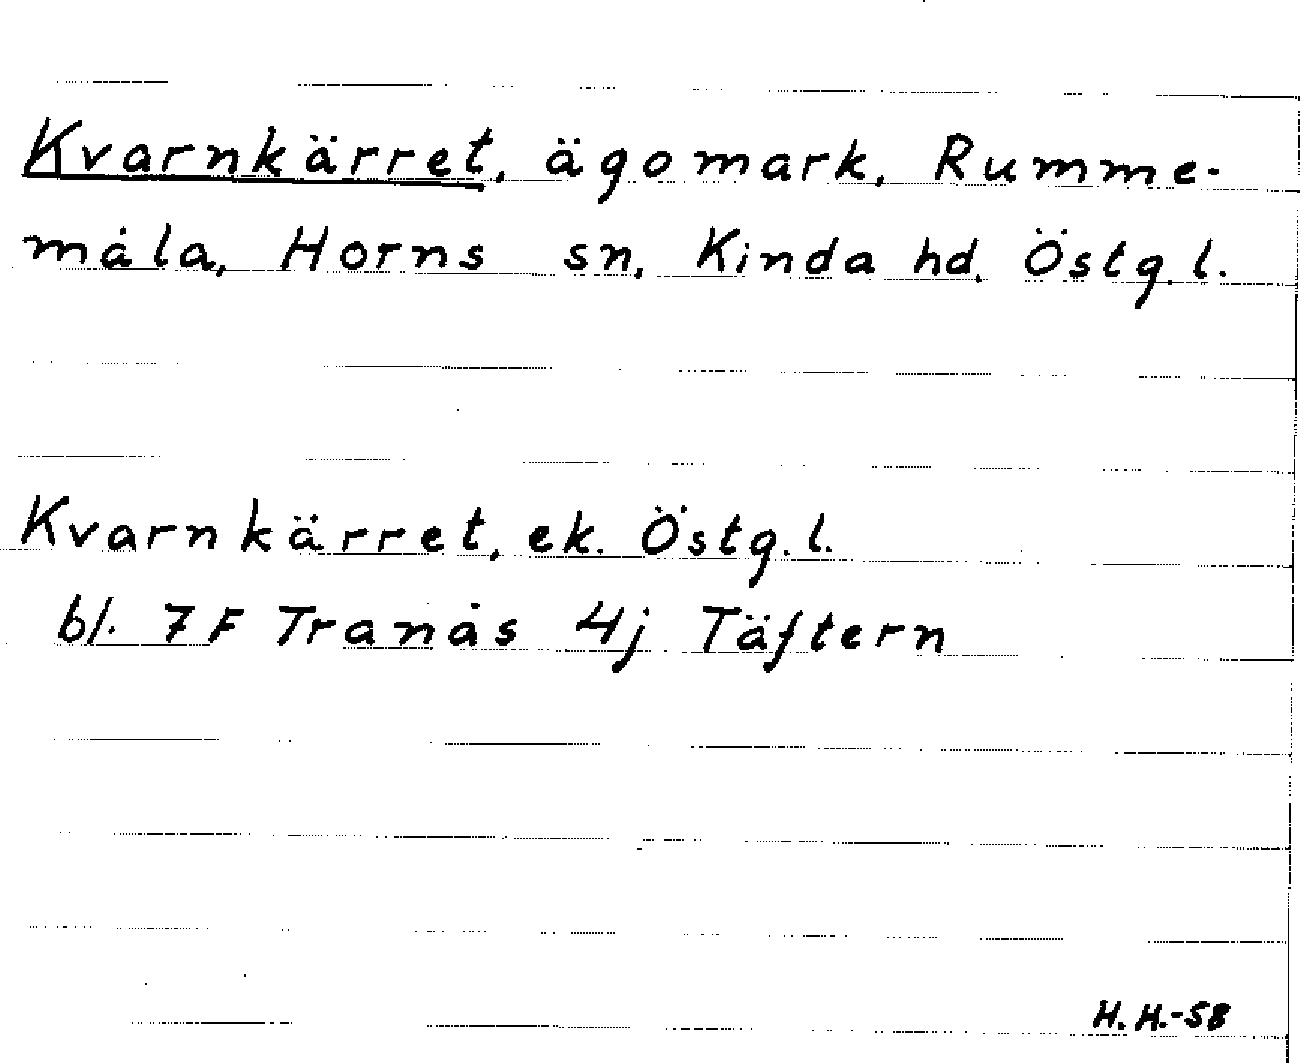 Kvarnkärret, ägomark, Rumme-
måla, Horns sn, Kinda hd, Östg.l.
Kvarnkärret, ek. Östg.l.
bl. 7F Tranås 4j Täftern
H.H.-58